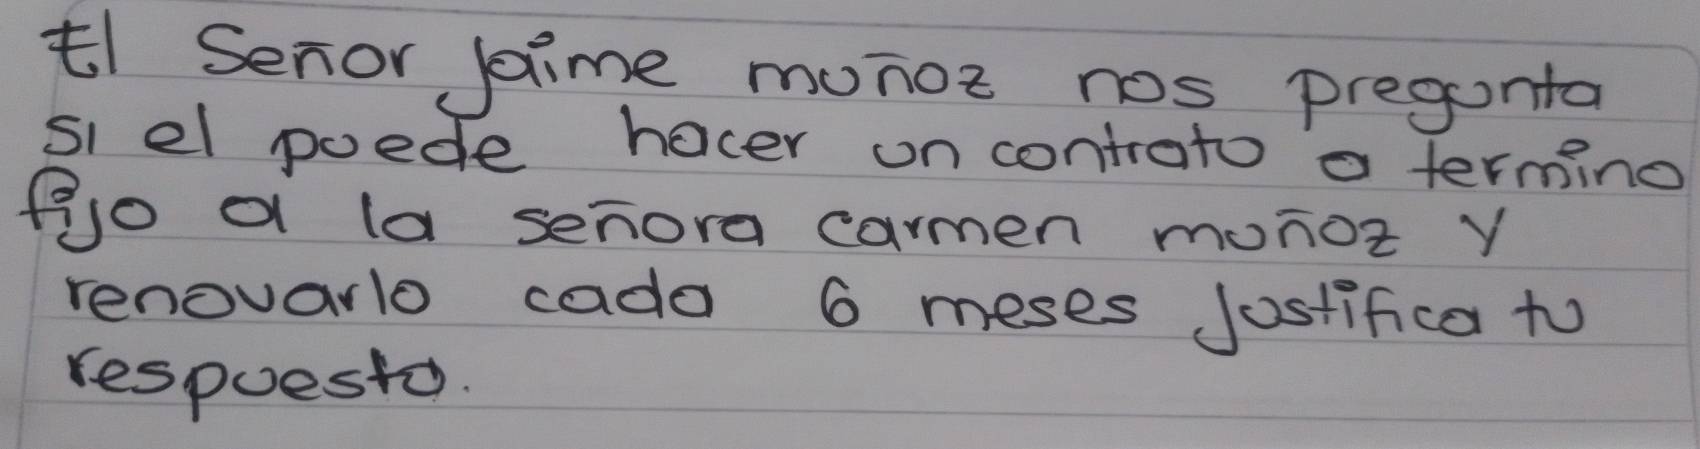 El Señor Jaime muñoz nos pregunta
si el puede hacer un contrato a termino
fijo a la señora carmen muñoz y
renovarlo cada 6 meses Justifica tu
respuesta.